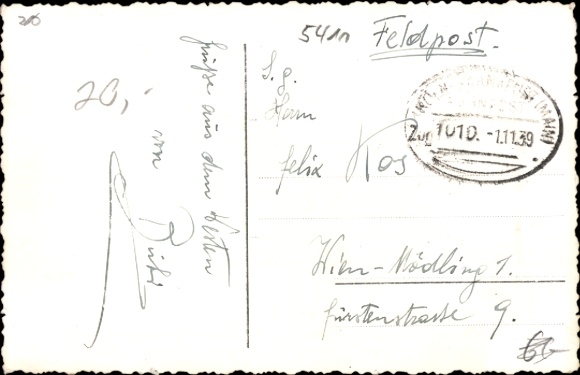 5411 Feldpost.
Grüße aus dem Westen
von
20,-
S. g.
Herrn
Felix Kos
Wien-Mödling 1.
Fürstenstrasse 9.
(MAIN)
Zug 1010. -1.11.39